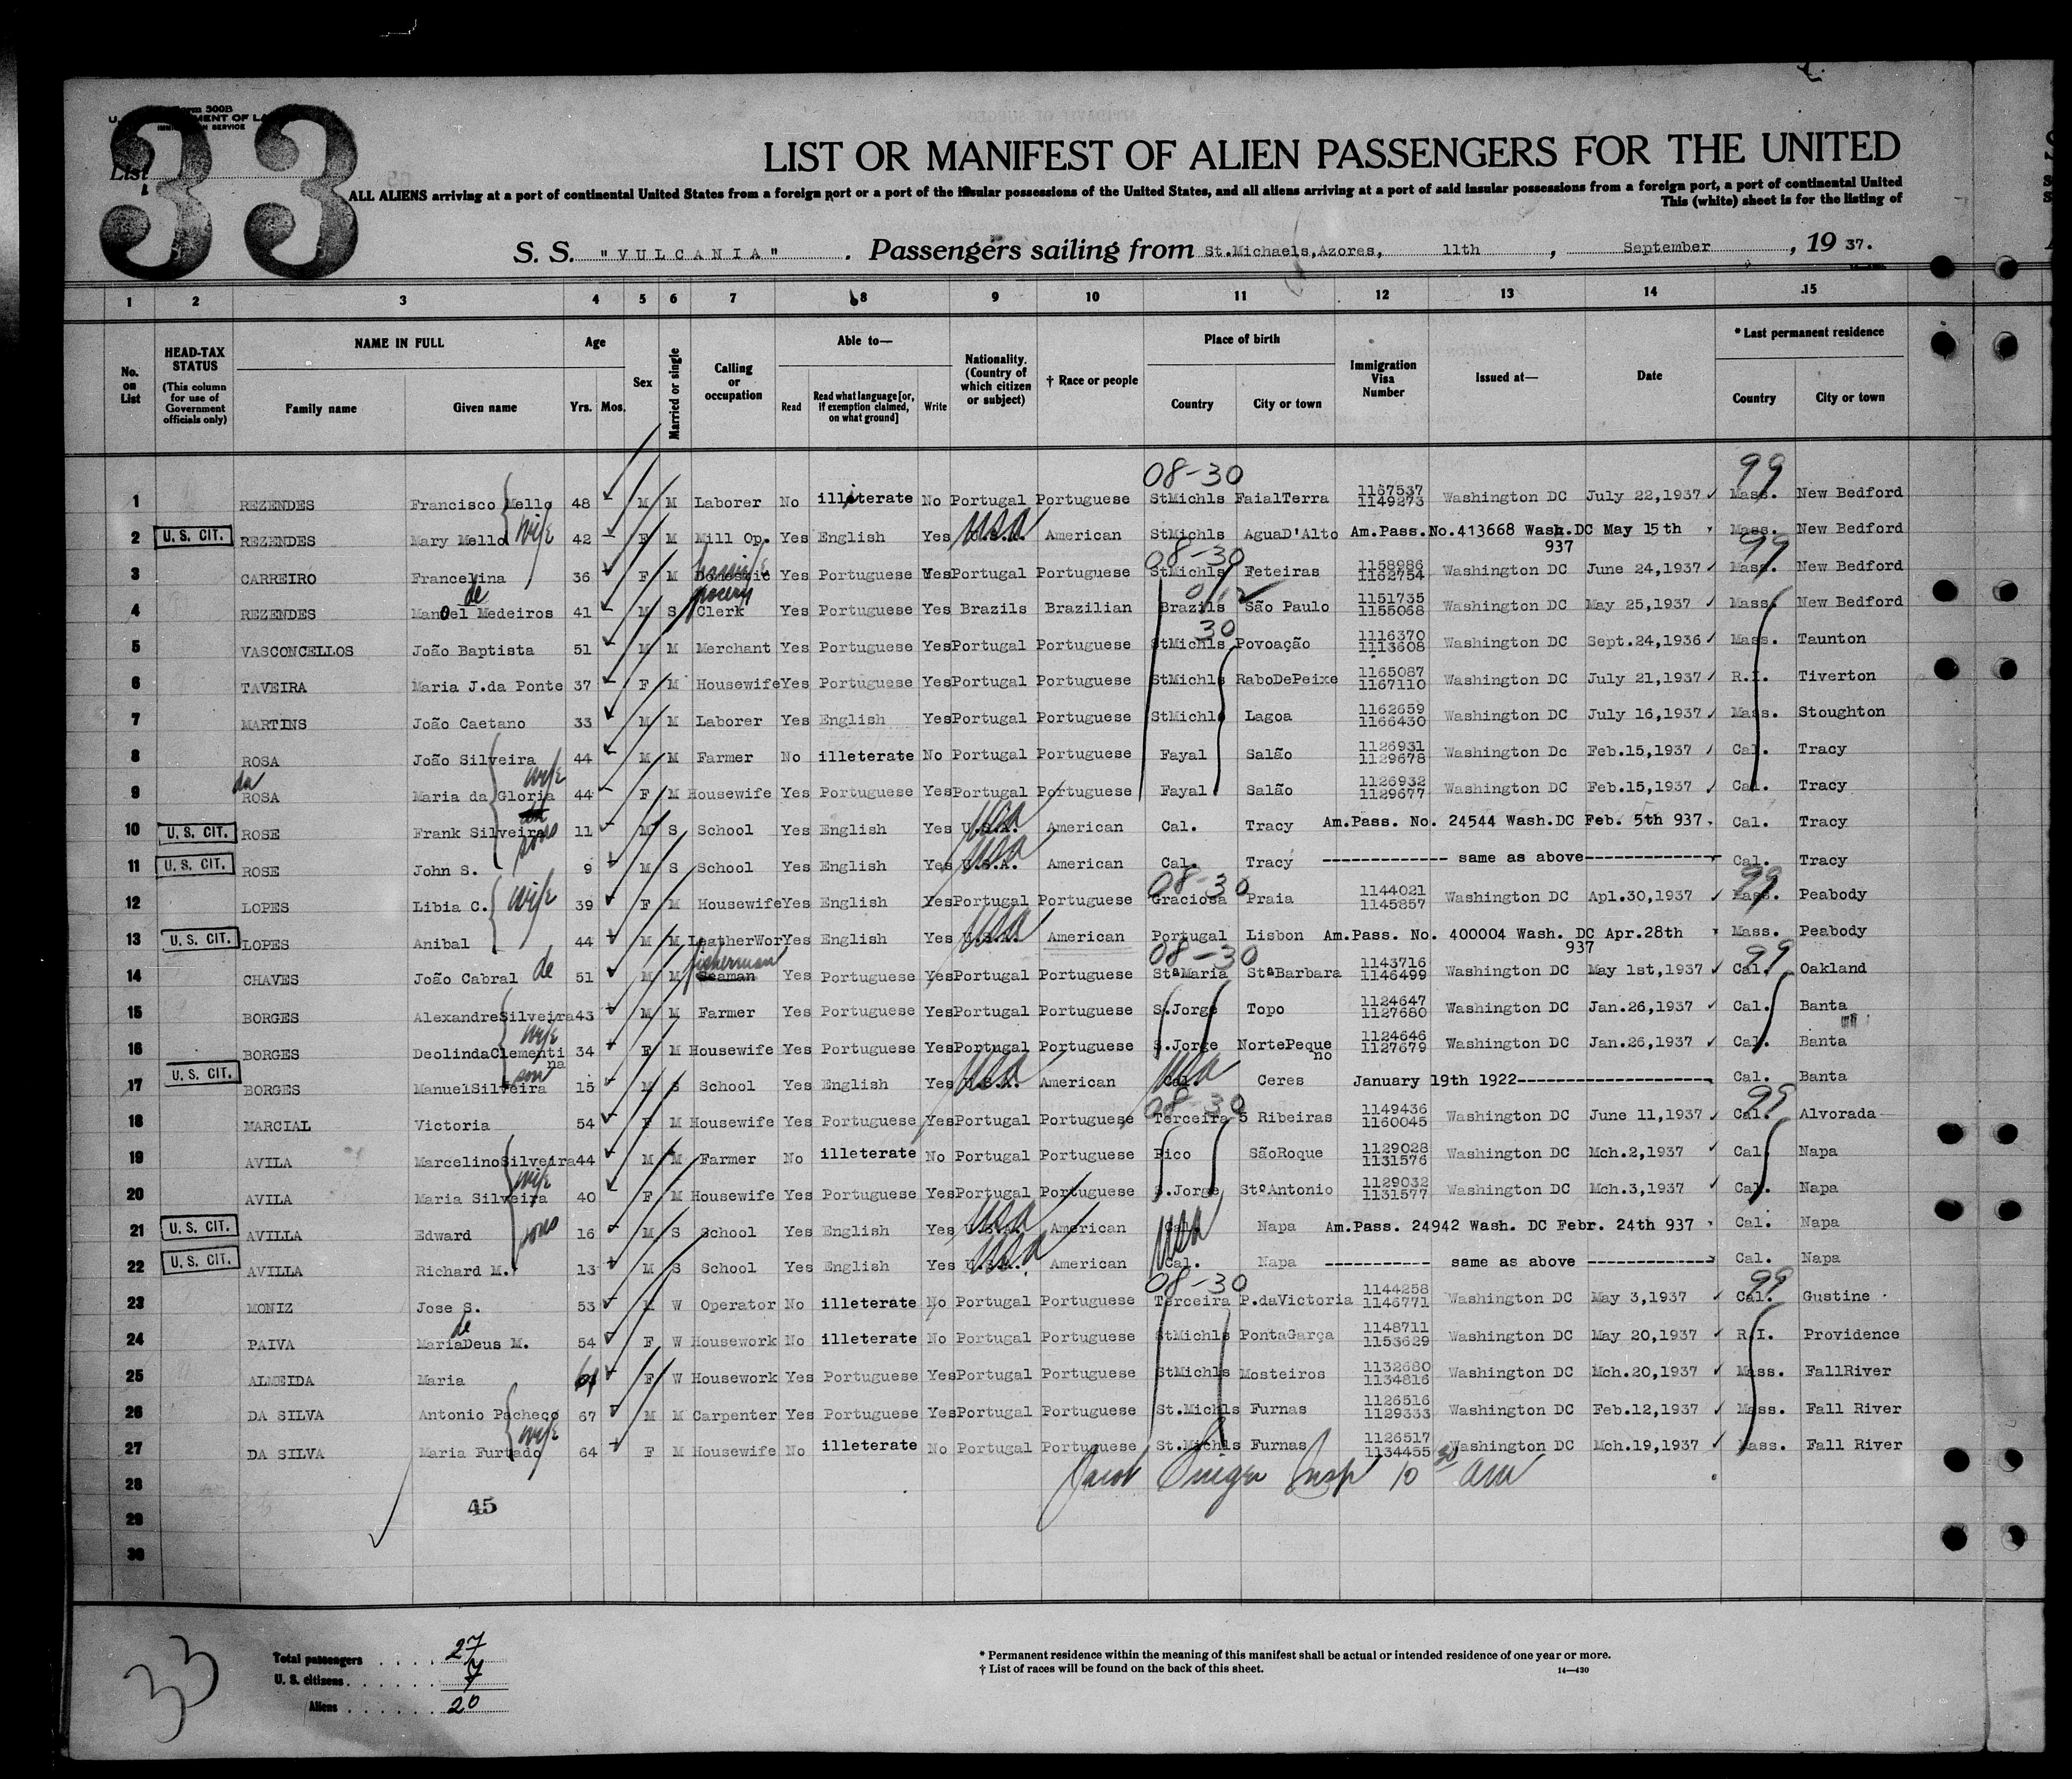 Form 500B
U. S. DEPARTMENT OF LA
IMMIGRATION SERVICE
33
List
LIST OR MANIFEST OF ALIEN PASSENGERS FOR THE UNITED
ALL ALIENS arriving at a port of continental United States from a foreign port or a port of the insular possessions of the United States, and all aliens arriving at a port of said insular possessions from a foreign port, a port of continental United
This (white) sheet is for the listing of
S. S. "VULCANIA". Passengers sailing from St.Michaels,Azores, 11th, September, 19 37.
1 2 3 4 5 6 7 8 9 10 11 12 13 14 15
No. on List
HEAD-TAX STATUS (This column for use of Government officials only)
NAME IN FULL Family name Given name
Age Yrs. Mos.
Sex
Married or single
Calling or occupation
Able to— Read Read what language [or, if exemption claimed, on what ground] Write
Nationality. (Country of which citizen or subject)
† Race or people
Place of birth Country City or town
Immigration Visa Number
Issued at—
Date
* Last permanent residence Country City or town
08-30 99
1 REZENDES Francisco Mello 48 M M Laborer No illiterate No Portugal Portuguese StMichls FaialTerra 1157537 1149273 Washington DC July 22,1937 Mass. New Bedford
2 U. S. CIT. REZENDES Mary Mello wife 42 F M Mill Op. Yes English Yes USA American StMichls AguaD'Alto Am.Pass.No.413668 Wash.DC May 15th 937 Mass. New Bedford
08-30 99
3 CARREIRO Francelina 36 F M Domestic housewife Yes Portuguese Yes Portugal Portuguese StMichls Feteiras 1158986 1162754 Washington DC June 24,1937 Mass. New Bedford
4 REZENDES Manoel de Medeiros 41 M S grocery Clerk Yes Portuguese Yes Brazils Brazilian Brazils São Paulo 1151735 1155068 Washington DC May 25,1937 Mass. New Bedford
30
5 VASCONCELLOS João Baptista 51 M M Merchant Yes Portuguese Yes Portugal Portuguese StMichls Povoação 1116370 1113608 Washington DC Sept.24,1936 Mass. Taunton
6 TAVEIRA Maria J.da Ponte 37 F M Housewife Yes Portuguese Yes Portugal Portuguese StMichls RaboDePeixe 1165087 1167110 Washington DC July 21,1937 R.I. Tiverton
7 MARTINS João Caetano 33 M M Laborer Yes English Yes Portugal Portuguese StMichls Lagoa 1162659 1166430 Washington DC July 16,1937 Mass. Stoughton
8 ROSA João Silveira 44 M M Farmer No illeterate No Portugal Portuguese Fayal Salão 1126931 1129678 Washington Dc Feb.15,1937 Cal. Tracy
9 da ROSA Maria da Gloria wife 44 F M Housewife Yes Portuguese Yes Portugal Portuguese Fayal Salão 1126932 1129677 Washington DC Feb.15,1937 Cal. Tracy
10 U. S. CIT. ROSE Frank Silveira sons 11 M S School Yes English Yes U.S.A. USA American Cal. Tracy Am.Pass. No. 24544 Wash.DC Feb. 5th 937. Cal. Tracy
11 U. S. CIT. ROSE John S. 9 M S School Yes English Yes U.S.A. USA American Cal. Tracy ------------- same as above-------------- Cal. Tracy
08-30 99
12 LOPES Libia C. wife 39 F M Housewife Yes English Yes Portugal Portuguese Graciosa Praia 1144021 1145857 Washington DC Apl.30,1937 Mass. Peabody
13 U. S. CIT. LOPES Anibal 44 M M LeatherWor Yes English Yes U.S.A. USA American Portugal Lisbon Am.Pass. No. 400004 Wash. DC Apr.28th 937 Mass. Peabody
08-30 99
14 CHAVES João Cabral de 51 M M Seaman fisherman Yes Portuguese Yes Portugal Portuguese StªMaria StªBarbara 1143716 1146499 Washington DC May 1st,1937 Cal. Oakland
15 BORGES AlexandreSilveira 43 M M Farmer Yes Portuguese Yes Portugal Portuguese S.Jorge Topo 1124647 1127680 Washington DC Jan.26,1937 Cal. Banta
16 BORGES DeolindaClementina wife 34 F M Housewife Yes Portuguese Yes Portugal Portuguese S.Jorge NortePequeno 1124646 1127679 Washington DC Jan.26,1937 Cal. Banta
17 U. S. CIT. BORGES ManuelSilveira son 15 M S School Yes English Yes U.S.A. USA American Cal. USA Ceres January 19th 1922-------------------- Cal. Banta
08-30 99
18 MARCIAL Victoria 54 F M Housewife Yes Portuguese Yes Portugal Portuguese Terceira 5 Ribeiras 1149436 1160045 Washington DC June 11,1937 Cal. Alvorada
19 AVILA MarcelinoSilveira 44 M M Farmer No illeterate No Portugal Portuguese Pico SãoRoque 1129028 1131576 Washington DC Mch.2,1937 Cal. Napa
20 AVILA Maria Silveira wife 40 F M Housewife Yes Portuguese Yes Portugal Portuguese S.Jorge StºAntonio 1129032 1131577 Washington DC Mch.3,1937 Cal. Napa
21 U. S. CIT. AVILLA Edward sons 16 M S School Yes English Yes U.S.A. USA American Cal. USA Napa Am.Pass. 24942 Wash. DC Febr. 24th 937 Cal. Napa
22 U. S. CIT. AVILLA Richard M. 13 M S School Yes English Yes U.S.A. USA American Cal. Napa ----------- same as above ------------- Cal. Napa
08-30 99
23 MONIZ Jose S. 53 M W Operator No illeterate No Portugal Portuguese Terceira P.daVictoria 1144258 1146771 Washington DC May 3,1937 Cal. Gustine
24 PAIVA Maria de Deus M. 54 F W Housework No illeterate No Portugal Portuguese StMichls PontaGarça 1148711 1153629 Washington DC May 20,1937 R.I. Providence
25 ALMEIDA Maria F W Housework Yes Portuguese Yes Portugal Portuguese StMichls Mosteiros 1132680 1134816 Washington DC Mch.20,1937 Mass. FallRiver
26 DA SILVA Antonio Pacheco 67 M M Carpenter Yes Portuguese Yes Portugal Portuguese St.Michls Furnas 1126516 1129333 Washington DC Feb.12,1937 Mass. Fall River
27 DA SILVA Maria Furtado wife 64 F M Housewife No illeterate No Portugal Portuguese St.Michls Furnas 1126517 1134455 Washington DC Mch.19,1937 Mass. Fall River
28 Jacob Singer Insp 10 30 am
29 45
30
33
Total passengers . . . . 27
U. S. citizens . . . . . . 7
Aliens . . . . . . 20
* Permanent residence within the meaning of this manifest shall be actual or intended residence of one year or more.
† List of races will be found on the back of this sheet. 14—430